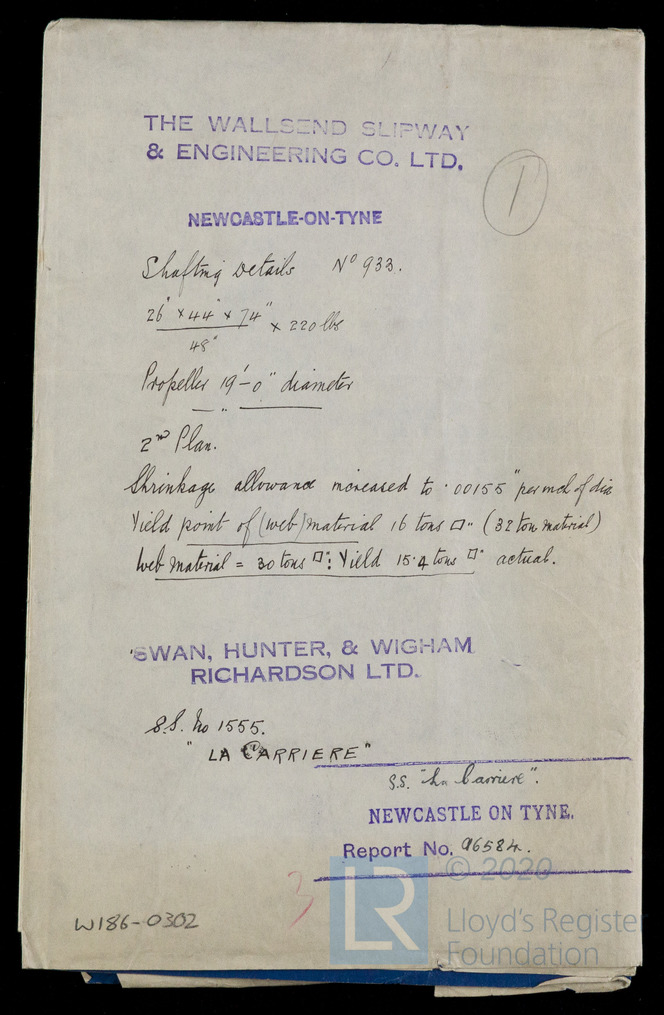 THE WALLSEND SLIPWAY
& ENGINEERING CO. LTD.
1
NEWCASTLE-ON-TYNE
Shafting Details Nº 933.
26" × 44" × 74" × 220 lbs
48"
Propeller 19'-0" diameter
2nd Plan.
Shrinkage allowance increased to ·00155" per inch of dia
Yield point of (web) material 16 tons □" (32 ton material)
Web material = 30 tons □": Yield 15·4 tons □" actual.
SWAN, HUNTER, & WIGHAM
RICHARDSON LTD.
S.S. No 1555.
"LA CARRIERE"
S.S. "La Carriere".
NEWCASTLE ON TYNE.
Report No. 96584.
3
© 2020
W186-0302
LR
Lloyd's Register
Foundation